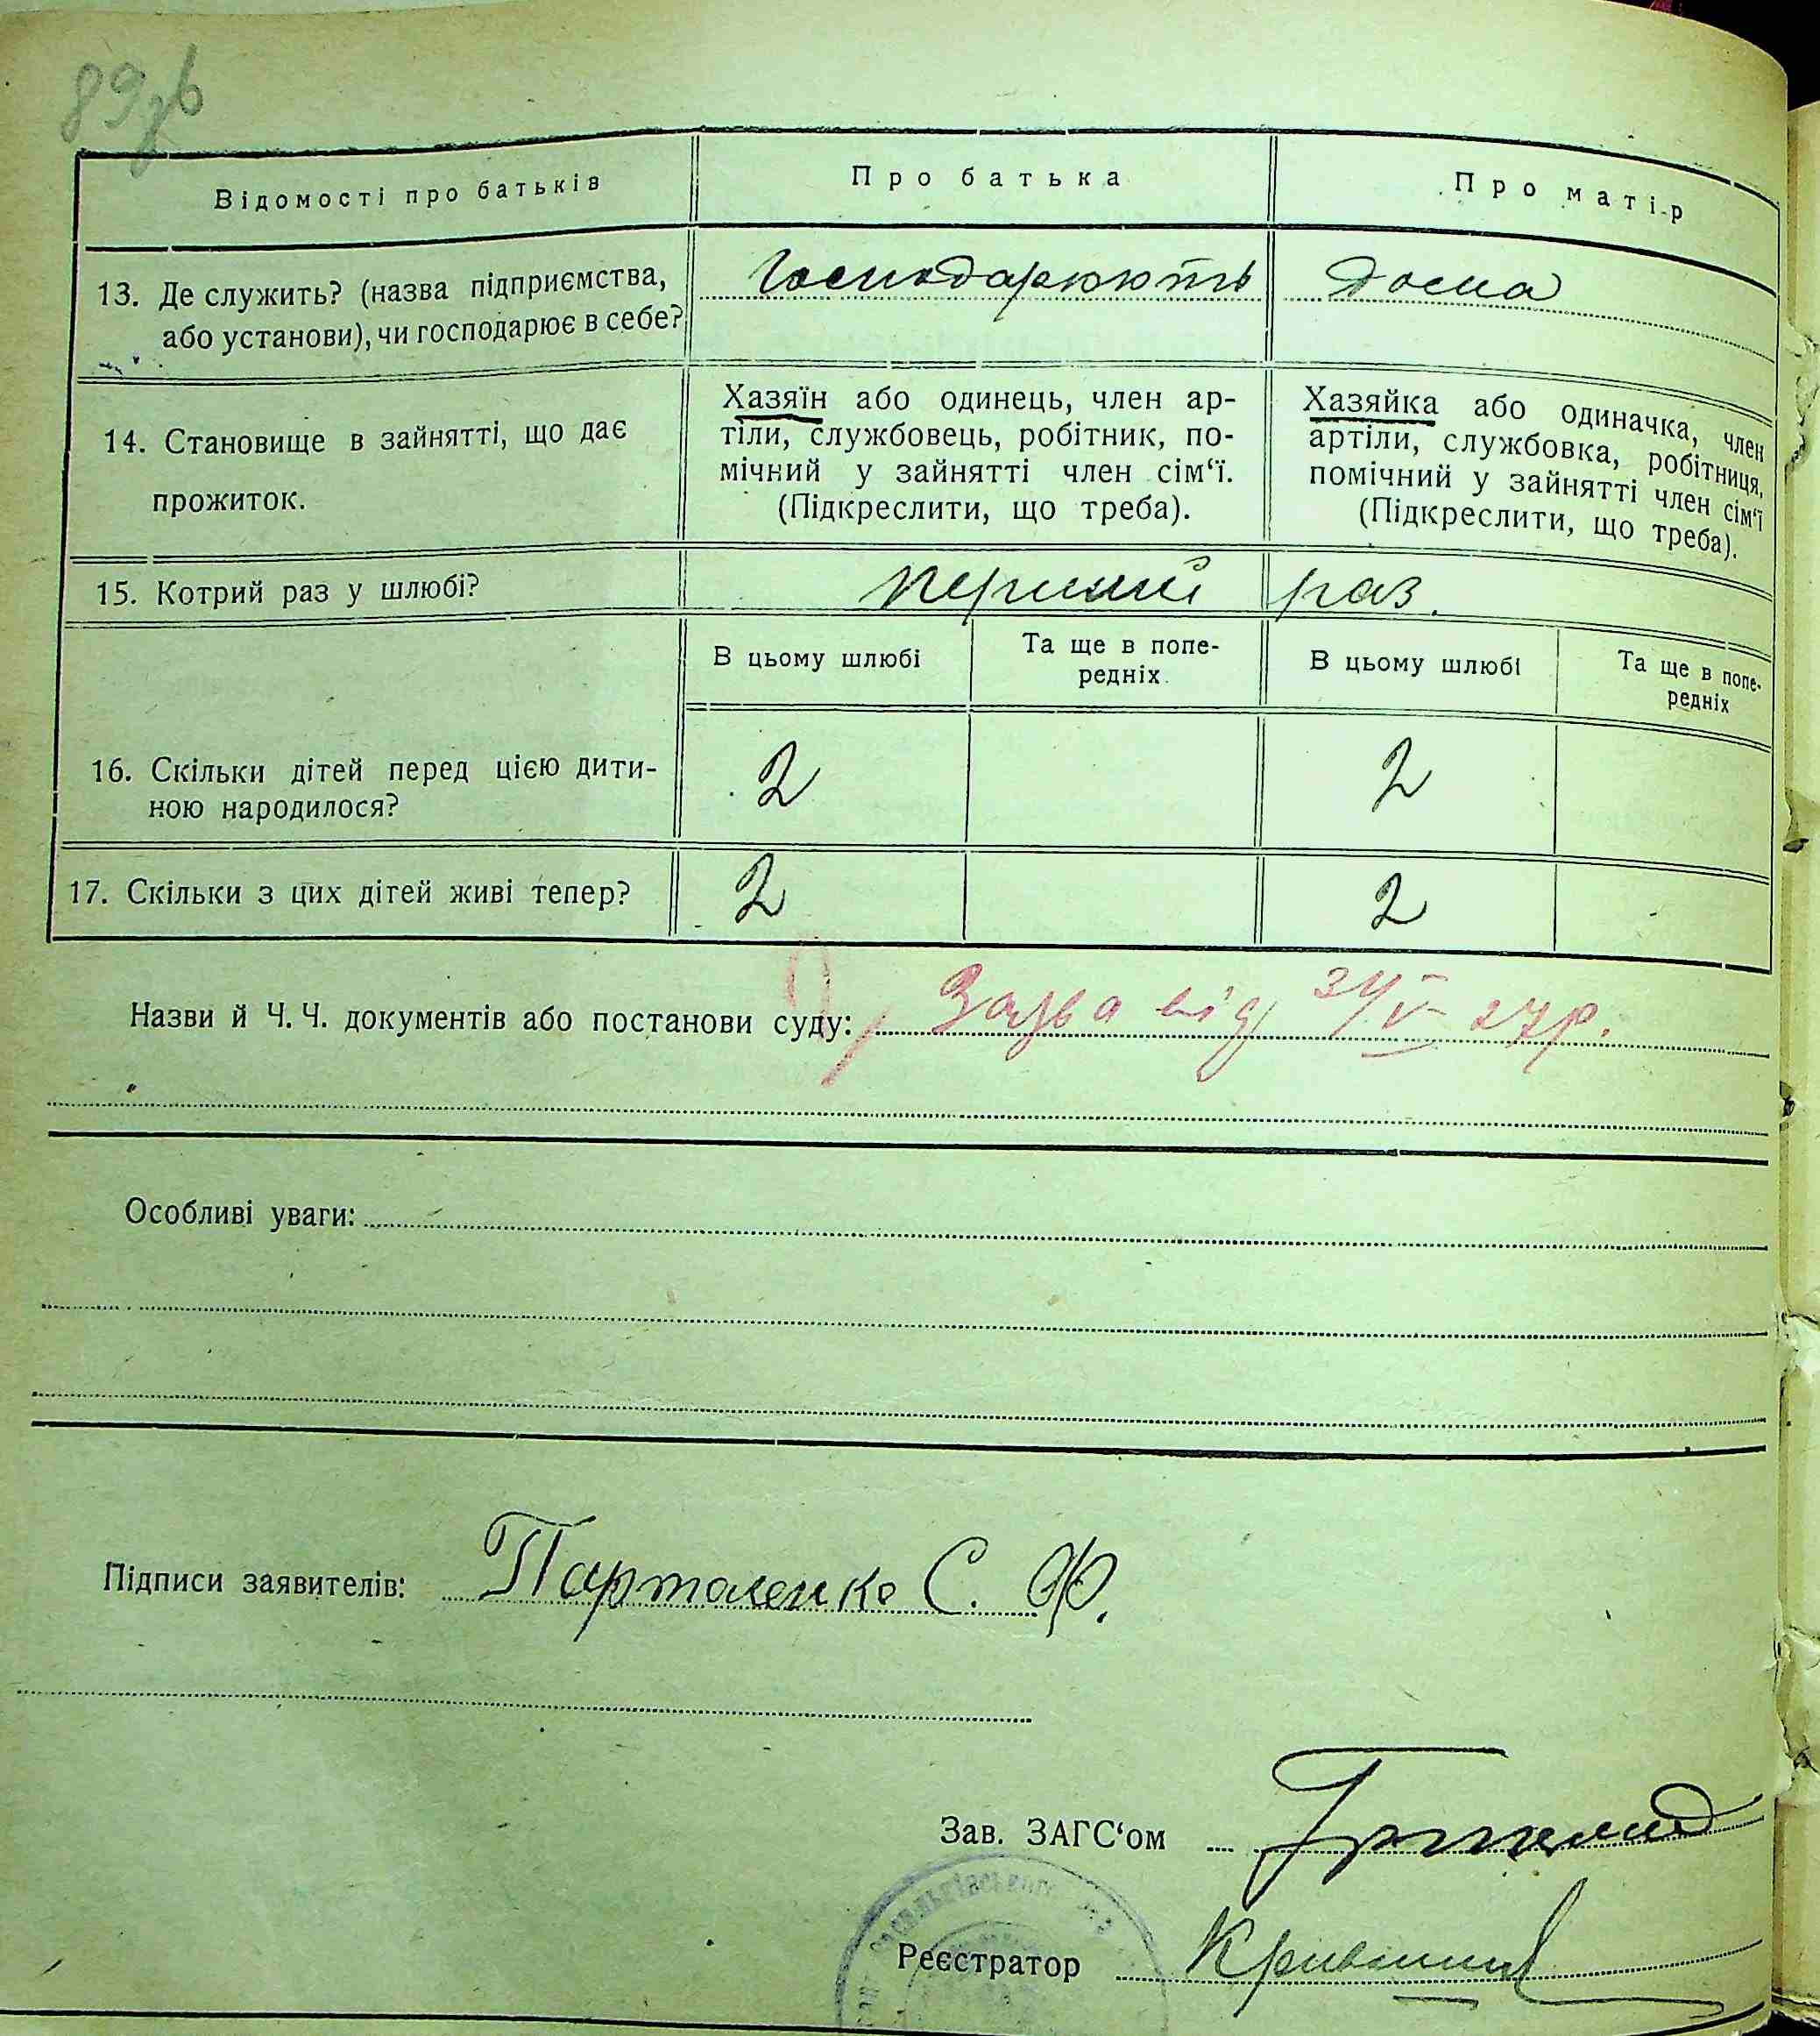 89зв
Відомості про батьків
Про батька
Про матір
13. Де служить? (назва підприємства,
або установи), чи господарює в себе?
Господарюють дома
14. Становище в зайнятті, що дає
прожиток.
Хазяїн або одинець, член ар-
тіли, службовець, робітник, по-
мічний у зайнятті член сім‘ї.
(Підкреслити, що треба).
Хазяйка або одиначка, член
артіли, службовка, робітниця,
помічний у зайнятті член сім‘ї
(Підкреслити, що треба).
15. Котрий раз у шлюбі?
перший раз.
В цьому шлюбі
Та ще в попе-
редніх.
В цьому шлюбі
Та ще в попе-
редніх
16. Скільки дітей перед цією дити-
ною народилося?
2
2
17. Скільки з цих дітей живі тепер?
2
2
Назви й Ч. Ч. документів або постанови суду: Заява від 24/V 27р.
Особливі уваги:
Підписи заявителів: Парталенко С. Ф.
Зав. ЗАГС‘ом
Реєстратор